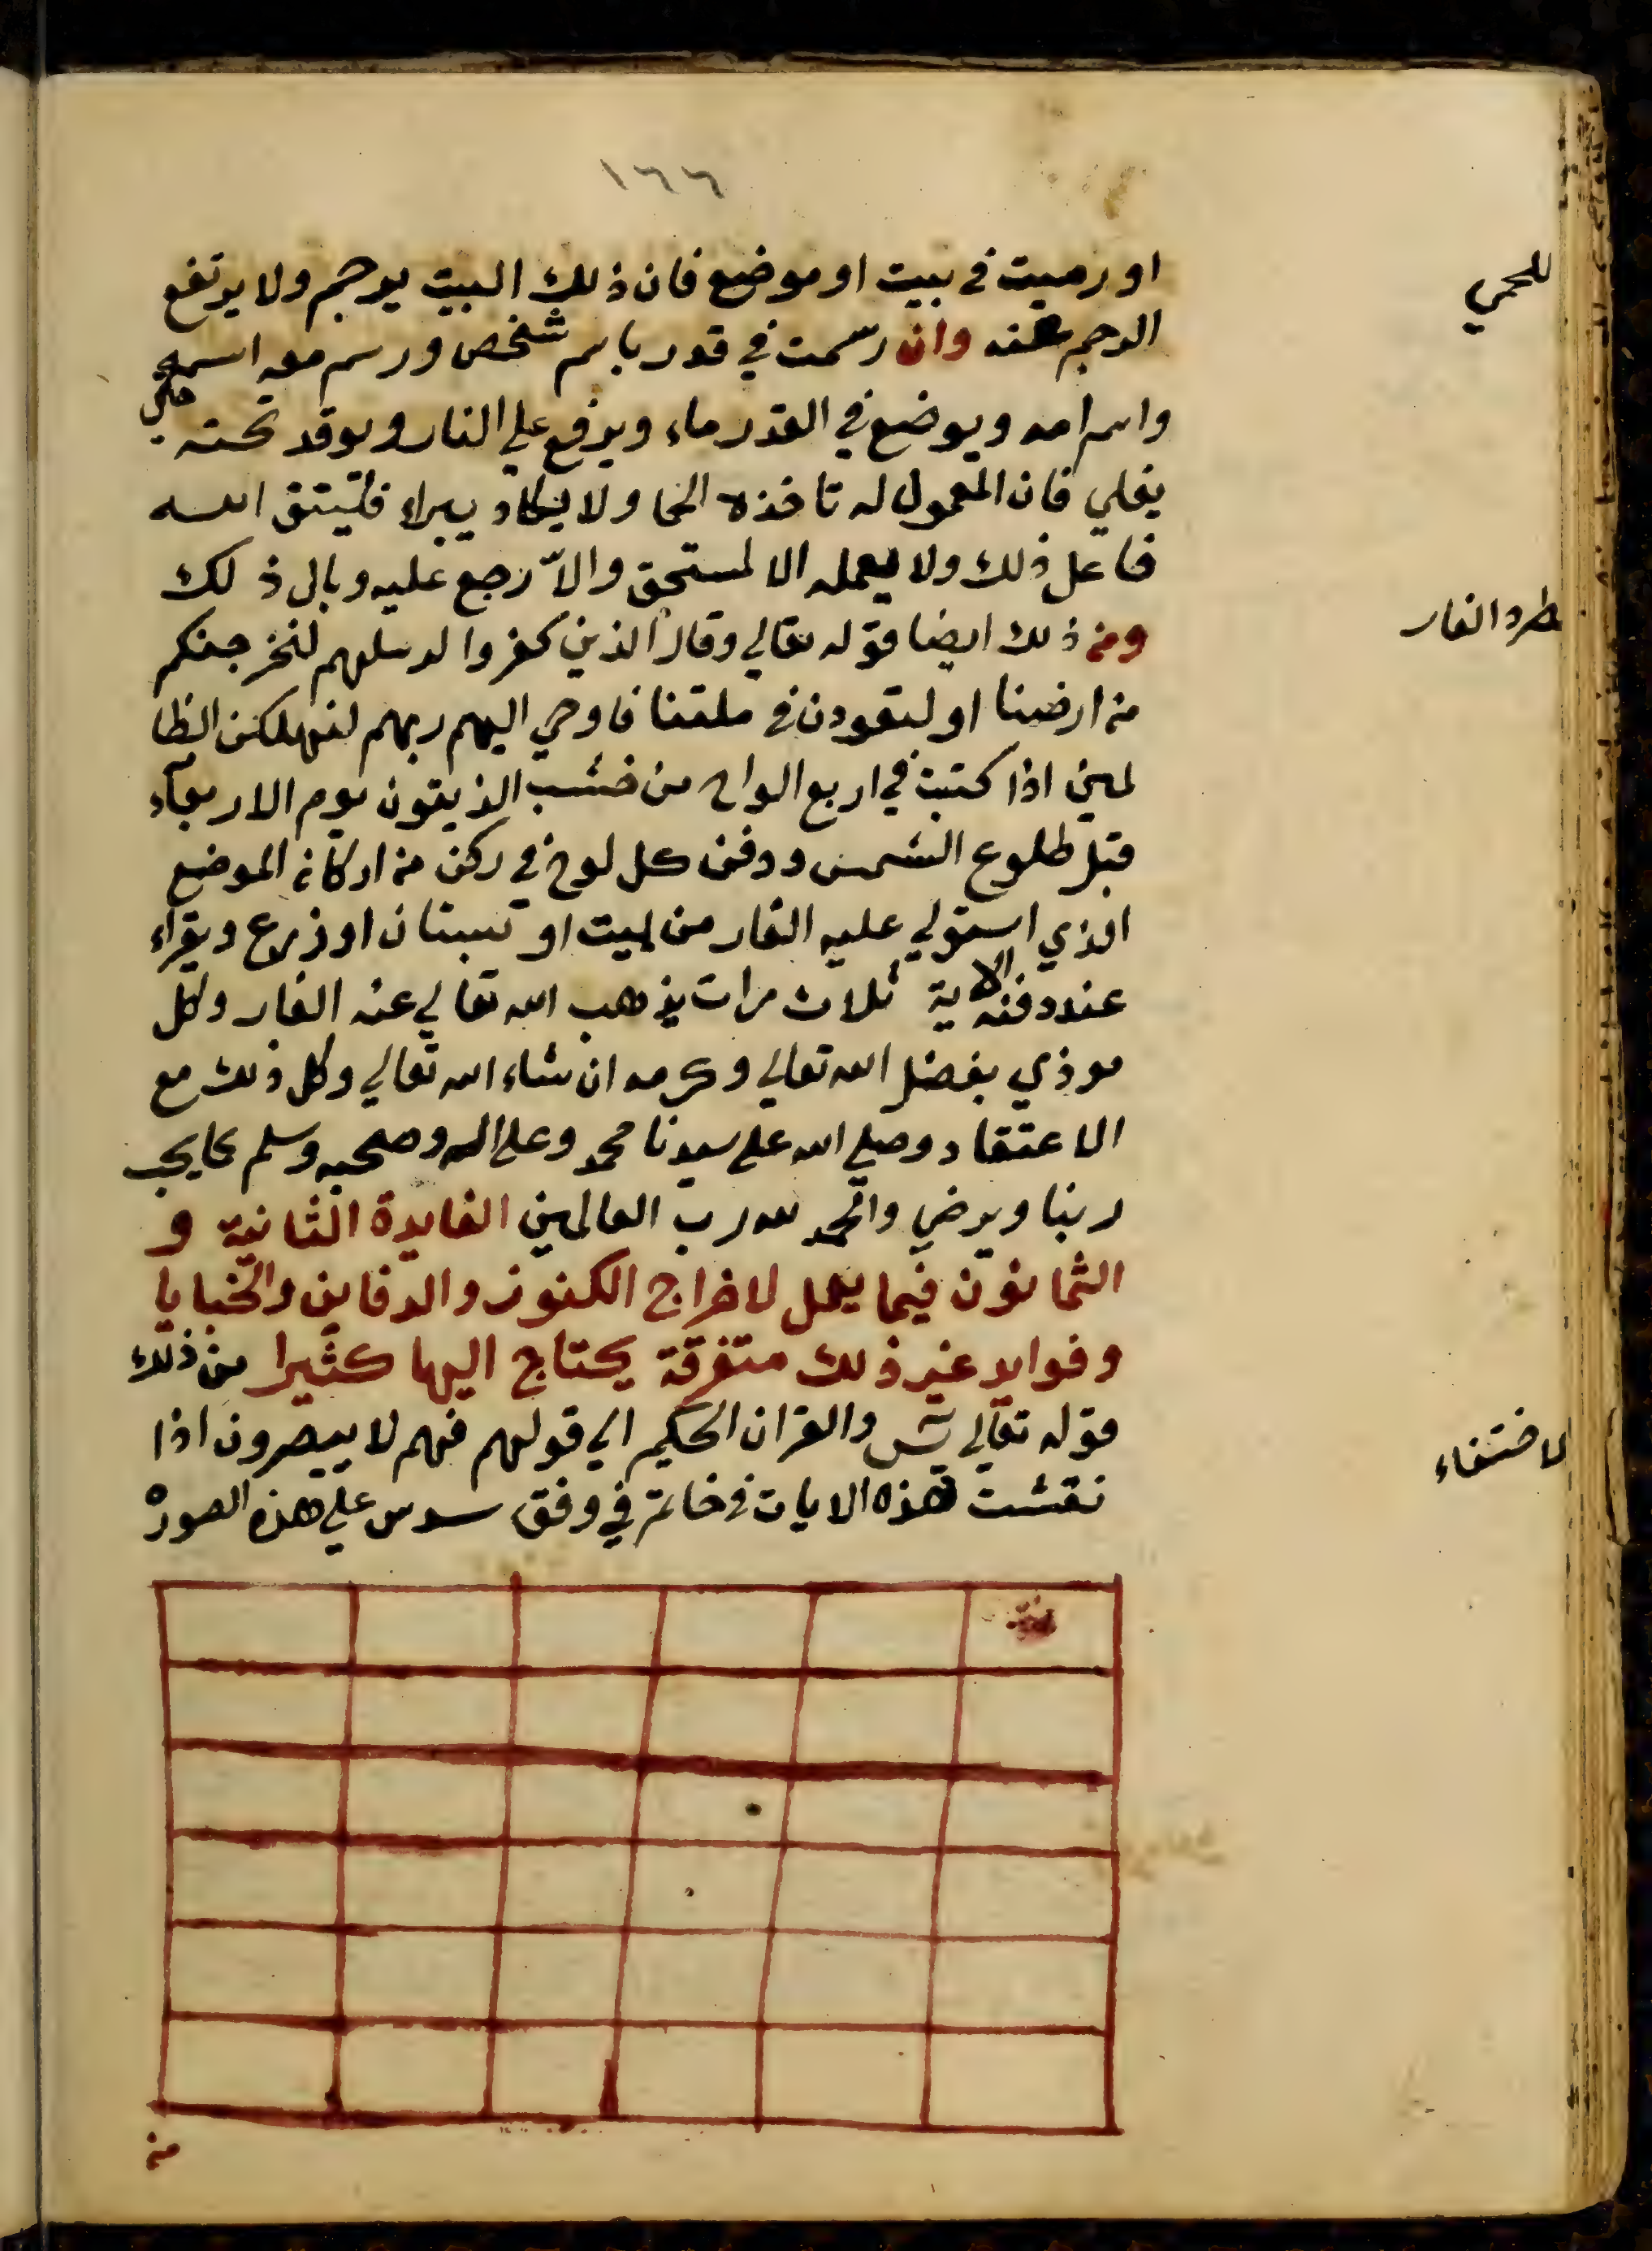 ١٦٦
او رميت في بيت او موضع فان ذلك البيت يرجم ولا يرتفع
للحمي
الرجم عنه وان رسمت في قدر باسم شخص ورسم معه اسمه
واسم امه ويوضع في القدر ماء ويرفع علي النار ويوقد تحته حتي
يغلي فان المعمول له تاخذه الحما ولا يكاد يبراء فليتق الله
فاعل ذلك ولا يعمله الا لمستحق والاّ رجع عليه وبال ذلك
طرد الفار
ومن ذلك ايضا قوله تعالي وقال الذين كفروا لرسلهم لنخرجنكم
من ارضنا او لتعودن في ملتنا فاوحي اليهم ربهم لنهلكن الظا
لمين اذا كتبت في اربع الواح من خشب الزيتون يوم الاربعآء
قبل طلوع الشمس ودفن كل لوح في ركن من اركان الموضع
الذي استولي عليه الفار من بيت او بستان او زرع ويقراء
عند دفنه الاية ثلاث مرات يذهب الله تعالي عنه الفار وكل
موذي بفضل الله تعالي وكرمه ان شاء الله تعالي وكل ذلك مع
الاعتقاد وصلي الله علي سيدنا محمد وعلي اله وصحبه وسلم كما يحب
ربنا ويرضي والحمد لله رب العالمين الفايدة الثانية و
الثمانون فيما يعمل لاخراج الكنوز والدفاين والخبايا
وفوايد غير ذلك متفرقة يحتاج اليها كثيرا من ذلك
قوله تعالي يس والقران الحكيم الي قولهم فهم لا يبصرون اذا
لاختفاء
نقشت هذه الايات في خاتم في وفق سدس علي هذه الصورة
من